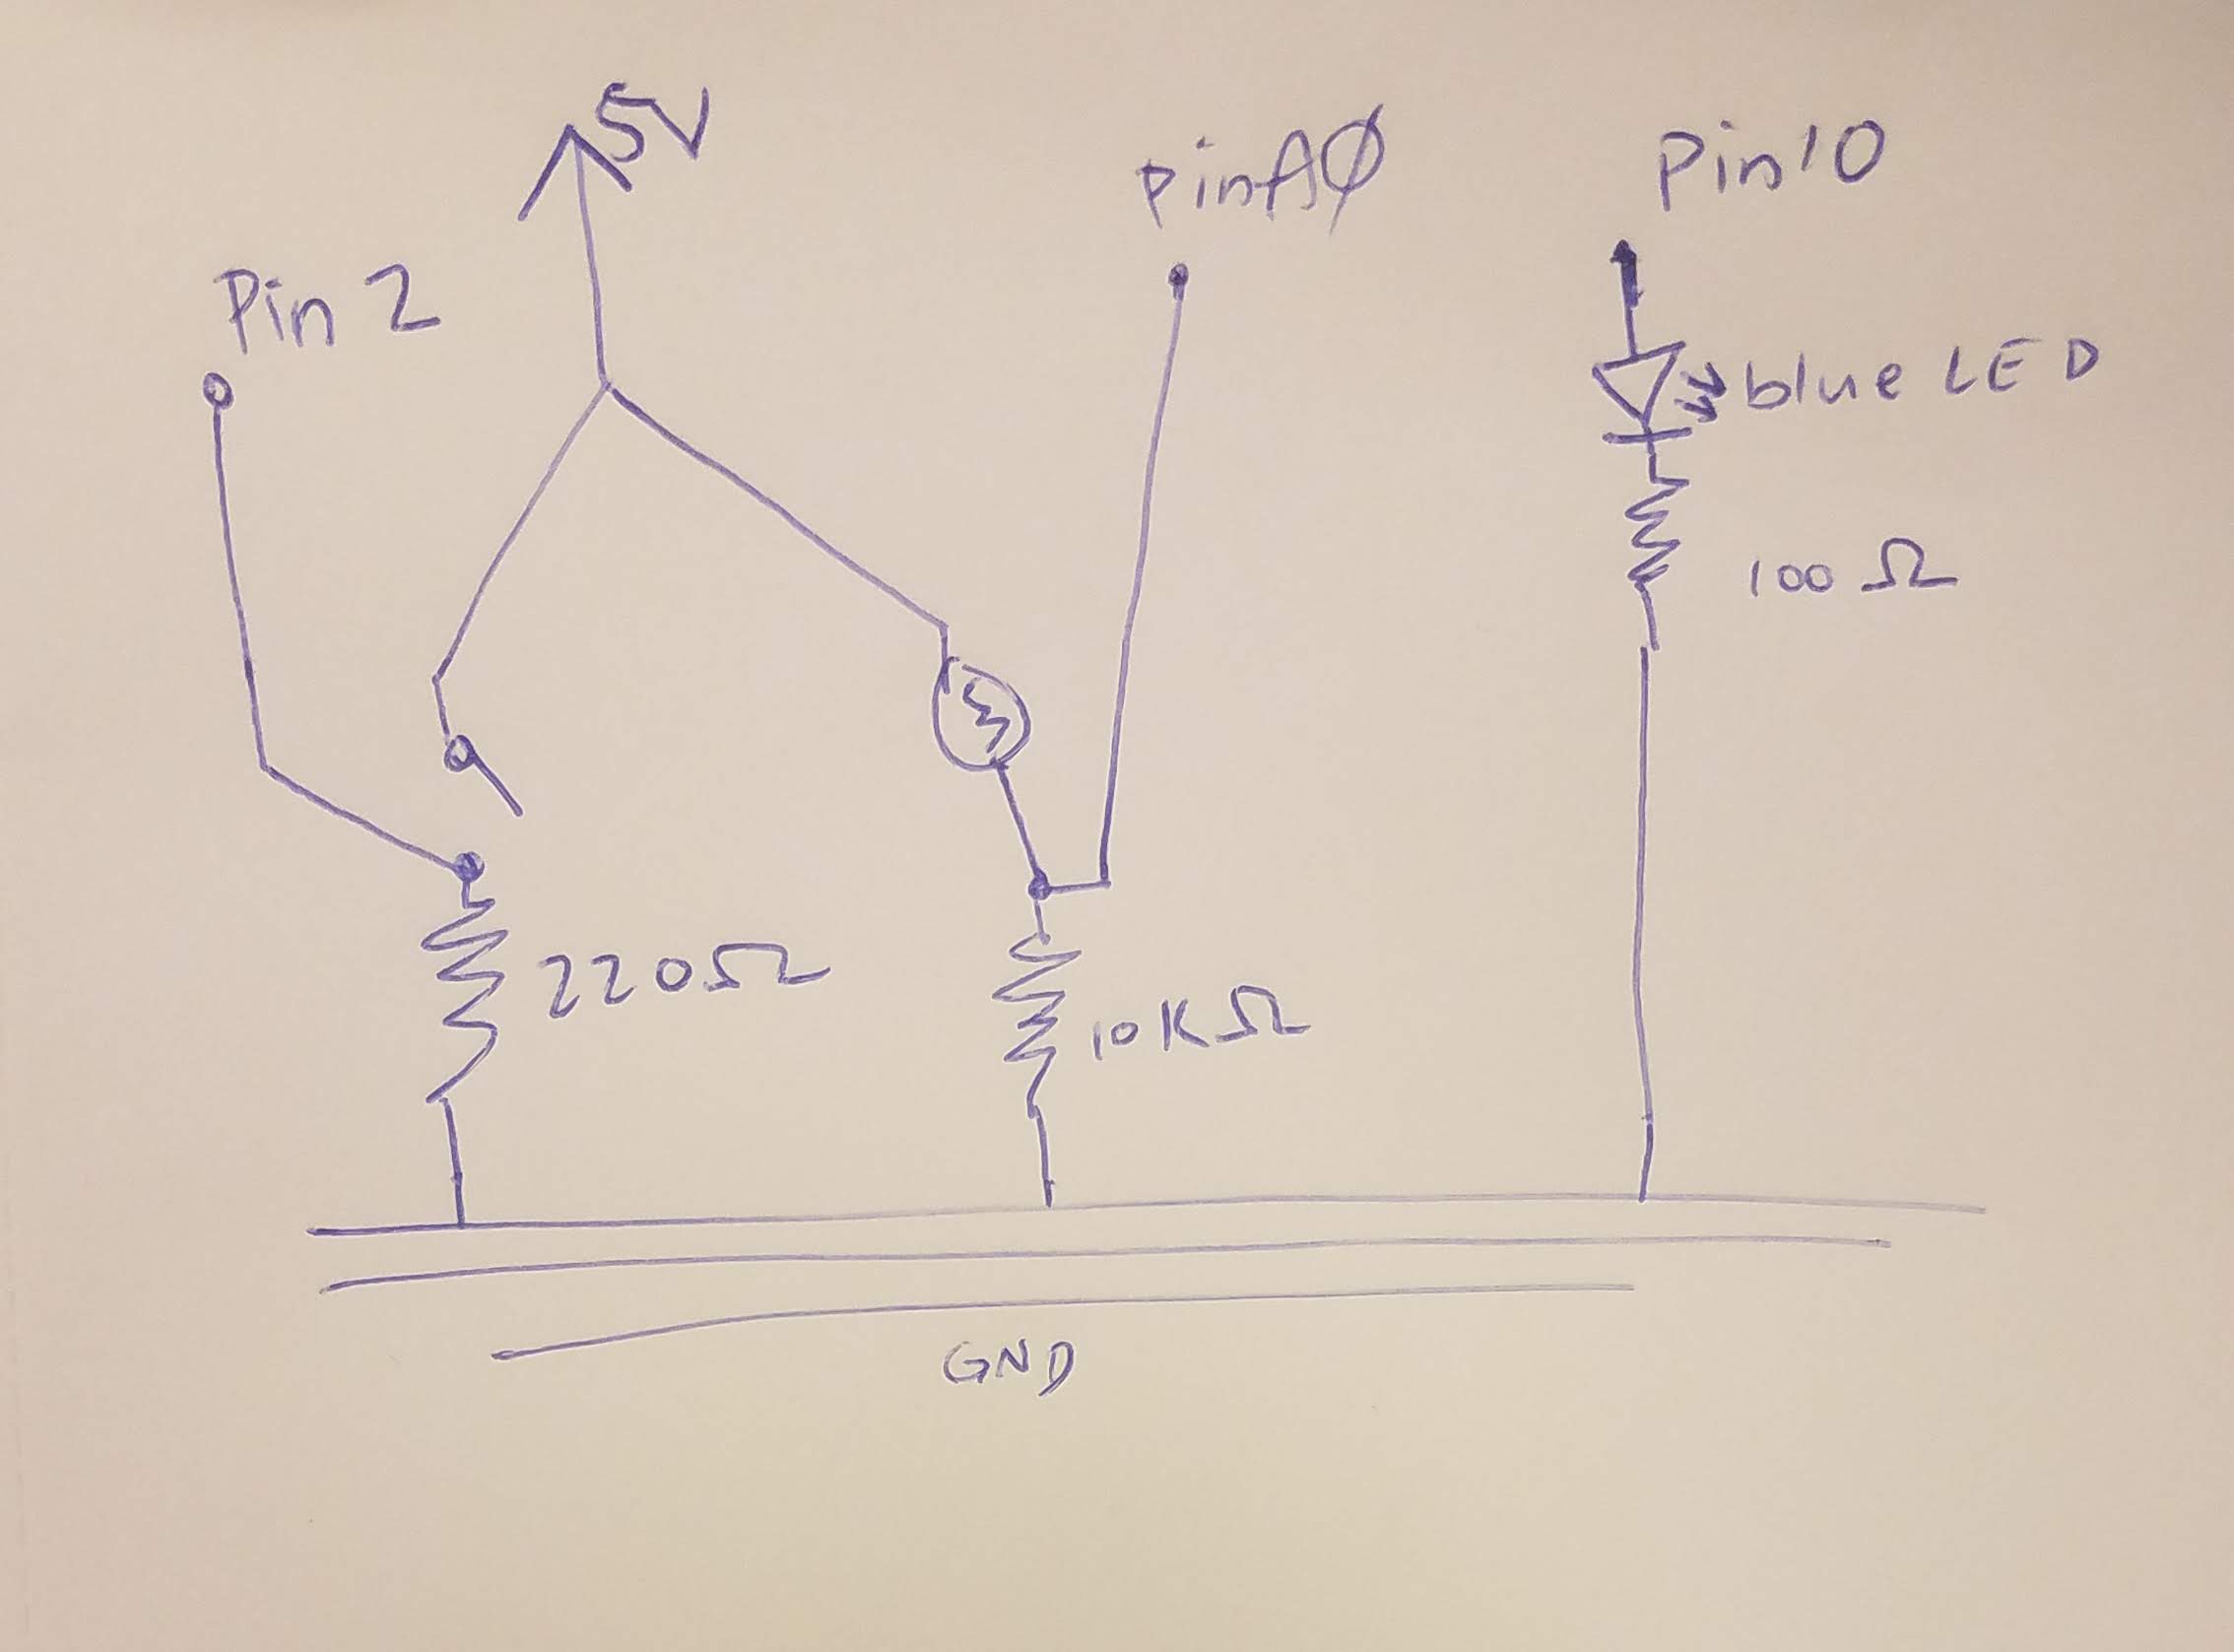 5V
Pin 2
pin A0
Pin 10
blue LED
100 Ω
220Ω
10KΩ
GND